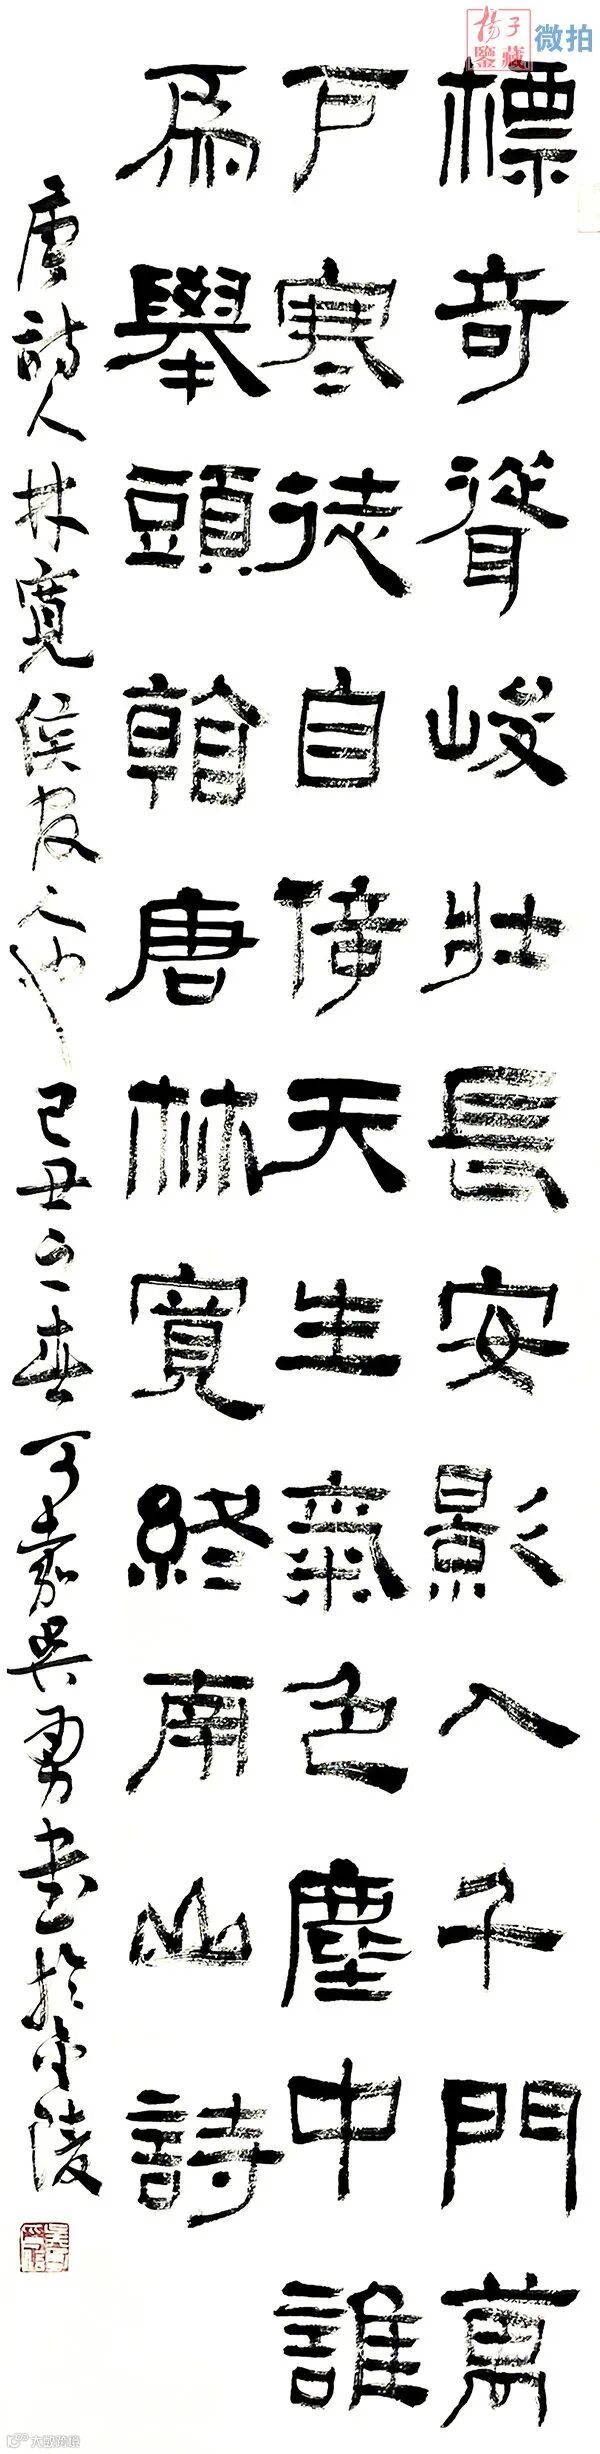 楊子鑒藏 微拍
標奇聳峻壯長安影入千門萬
戶寒徒自倚天生氣色塵中誰
爲舉頭翰唐林寬終南山詩
唐詩人林寬侯官人也己丑之春可嘉吳勇書於金陵